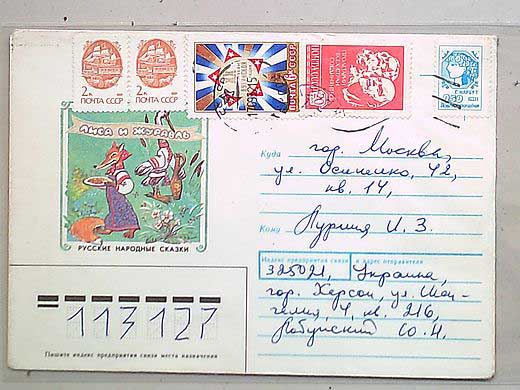 2к
ПОЧТА СССР
2к
ПОЧТА СССР
ПОЧТА СССР
ЛИСА И ЖУРАВЛЬ
РУССКИЕ НАРОДНЫЕ СКАЗКИ
Куда
гор. Москва,
ул. Осипенко, 42,
кв. 14,
Кому
И. З.
Индекс предприятия связи и адрес отправителя
325021, Украина,
гор. Херсон, ул.
4, кв. 216,
Ю. Н.
113127
Пишите индекс предприятия связи места назначения